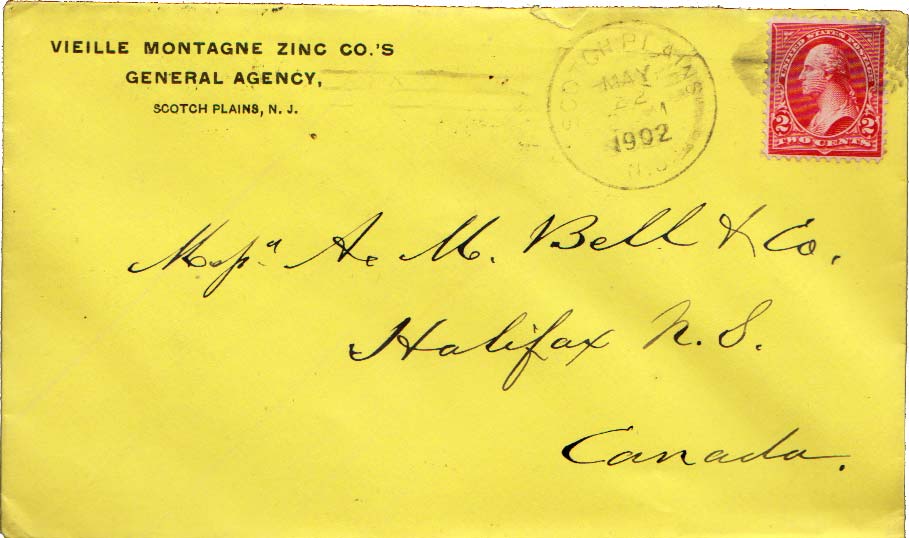 VIEILLE MONTAGNE ZINC CO.'S
GENERAL AGENCY,
SCOTCH PLAINS, N. J.
SCOTCH PLAINS
MAY
22
1902
N.J.
UNITED STATES POSTAGE
2 2
TWO CENTS
Messrs A. M. Bell & Co.
Halifax N. S.
Canada.